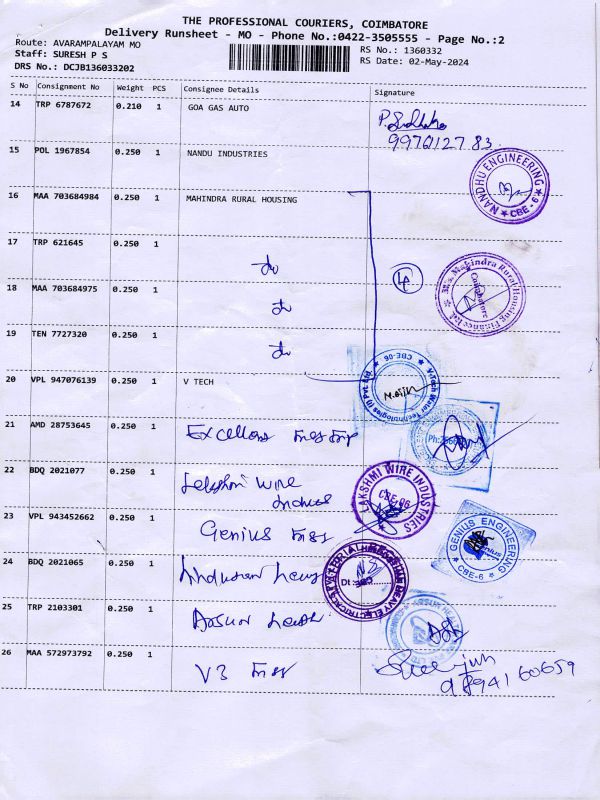 THE PROFESSIONAL COURIERS, COIMBATORE
Delivery Runsheet - MO - Phone No.:0422-3505555 - Page No.:2
Route: AVARAMPALAYAM MO
Staff: SURESH P S
DRS No.: DCJB136033202
RS No.: 1360332
RS Date: 02-May-2024
S No Consignment No Weight PCS Consignee Details Signature
14 TRP 6787672 0.210 1 GOA GAS AUTO
15 POL 1967854 0.250 1 NANDU INDUSTRIES
NANDHU ENGINEERING
★ CBE-6 ★
16 MAA 703684984 0.250 1 MAHINDRA RURAL HOUSING
17 TRP 621645 0.250 1
Mahindra Rural Housing Finance Ltd
Coimbatore
18 MAA 703684975 0.250 1
19 TEN 7727320 0.250 1
V-Tech Water Technologies (I) Pvt Ltd.
★ CBE-06 ★
20 VPL 947076139 0.250 1 V TECH
21 AMD 28753645 0.250 1
22 BDQ 2021077 0.250 1 Lakshmi Wire
LAKSHMI WIRE INDUSTRIES
CBE-06
23 VPL 943452662 0.250 1 Genius
GENIUS ENGINEERING
★ CBE-6 ★
24 BDQ 2021065 0.250 1
25 TRP 2103301 0.250 1
26 MAA 572973792 0.250 1 V3
9894160659